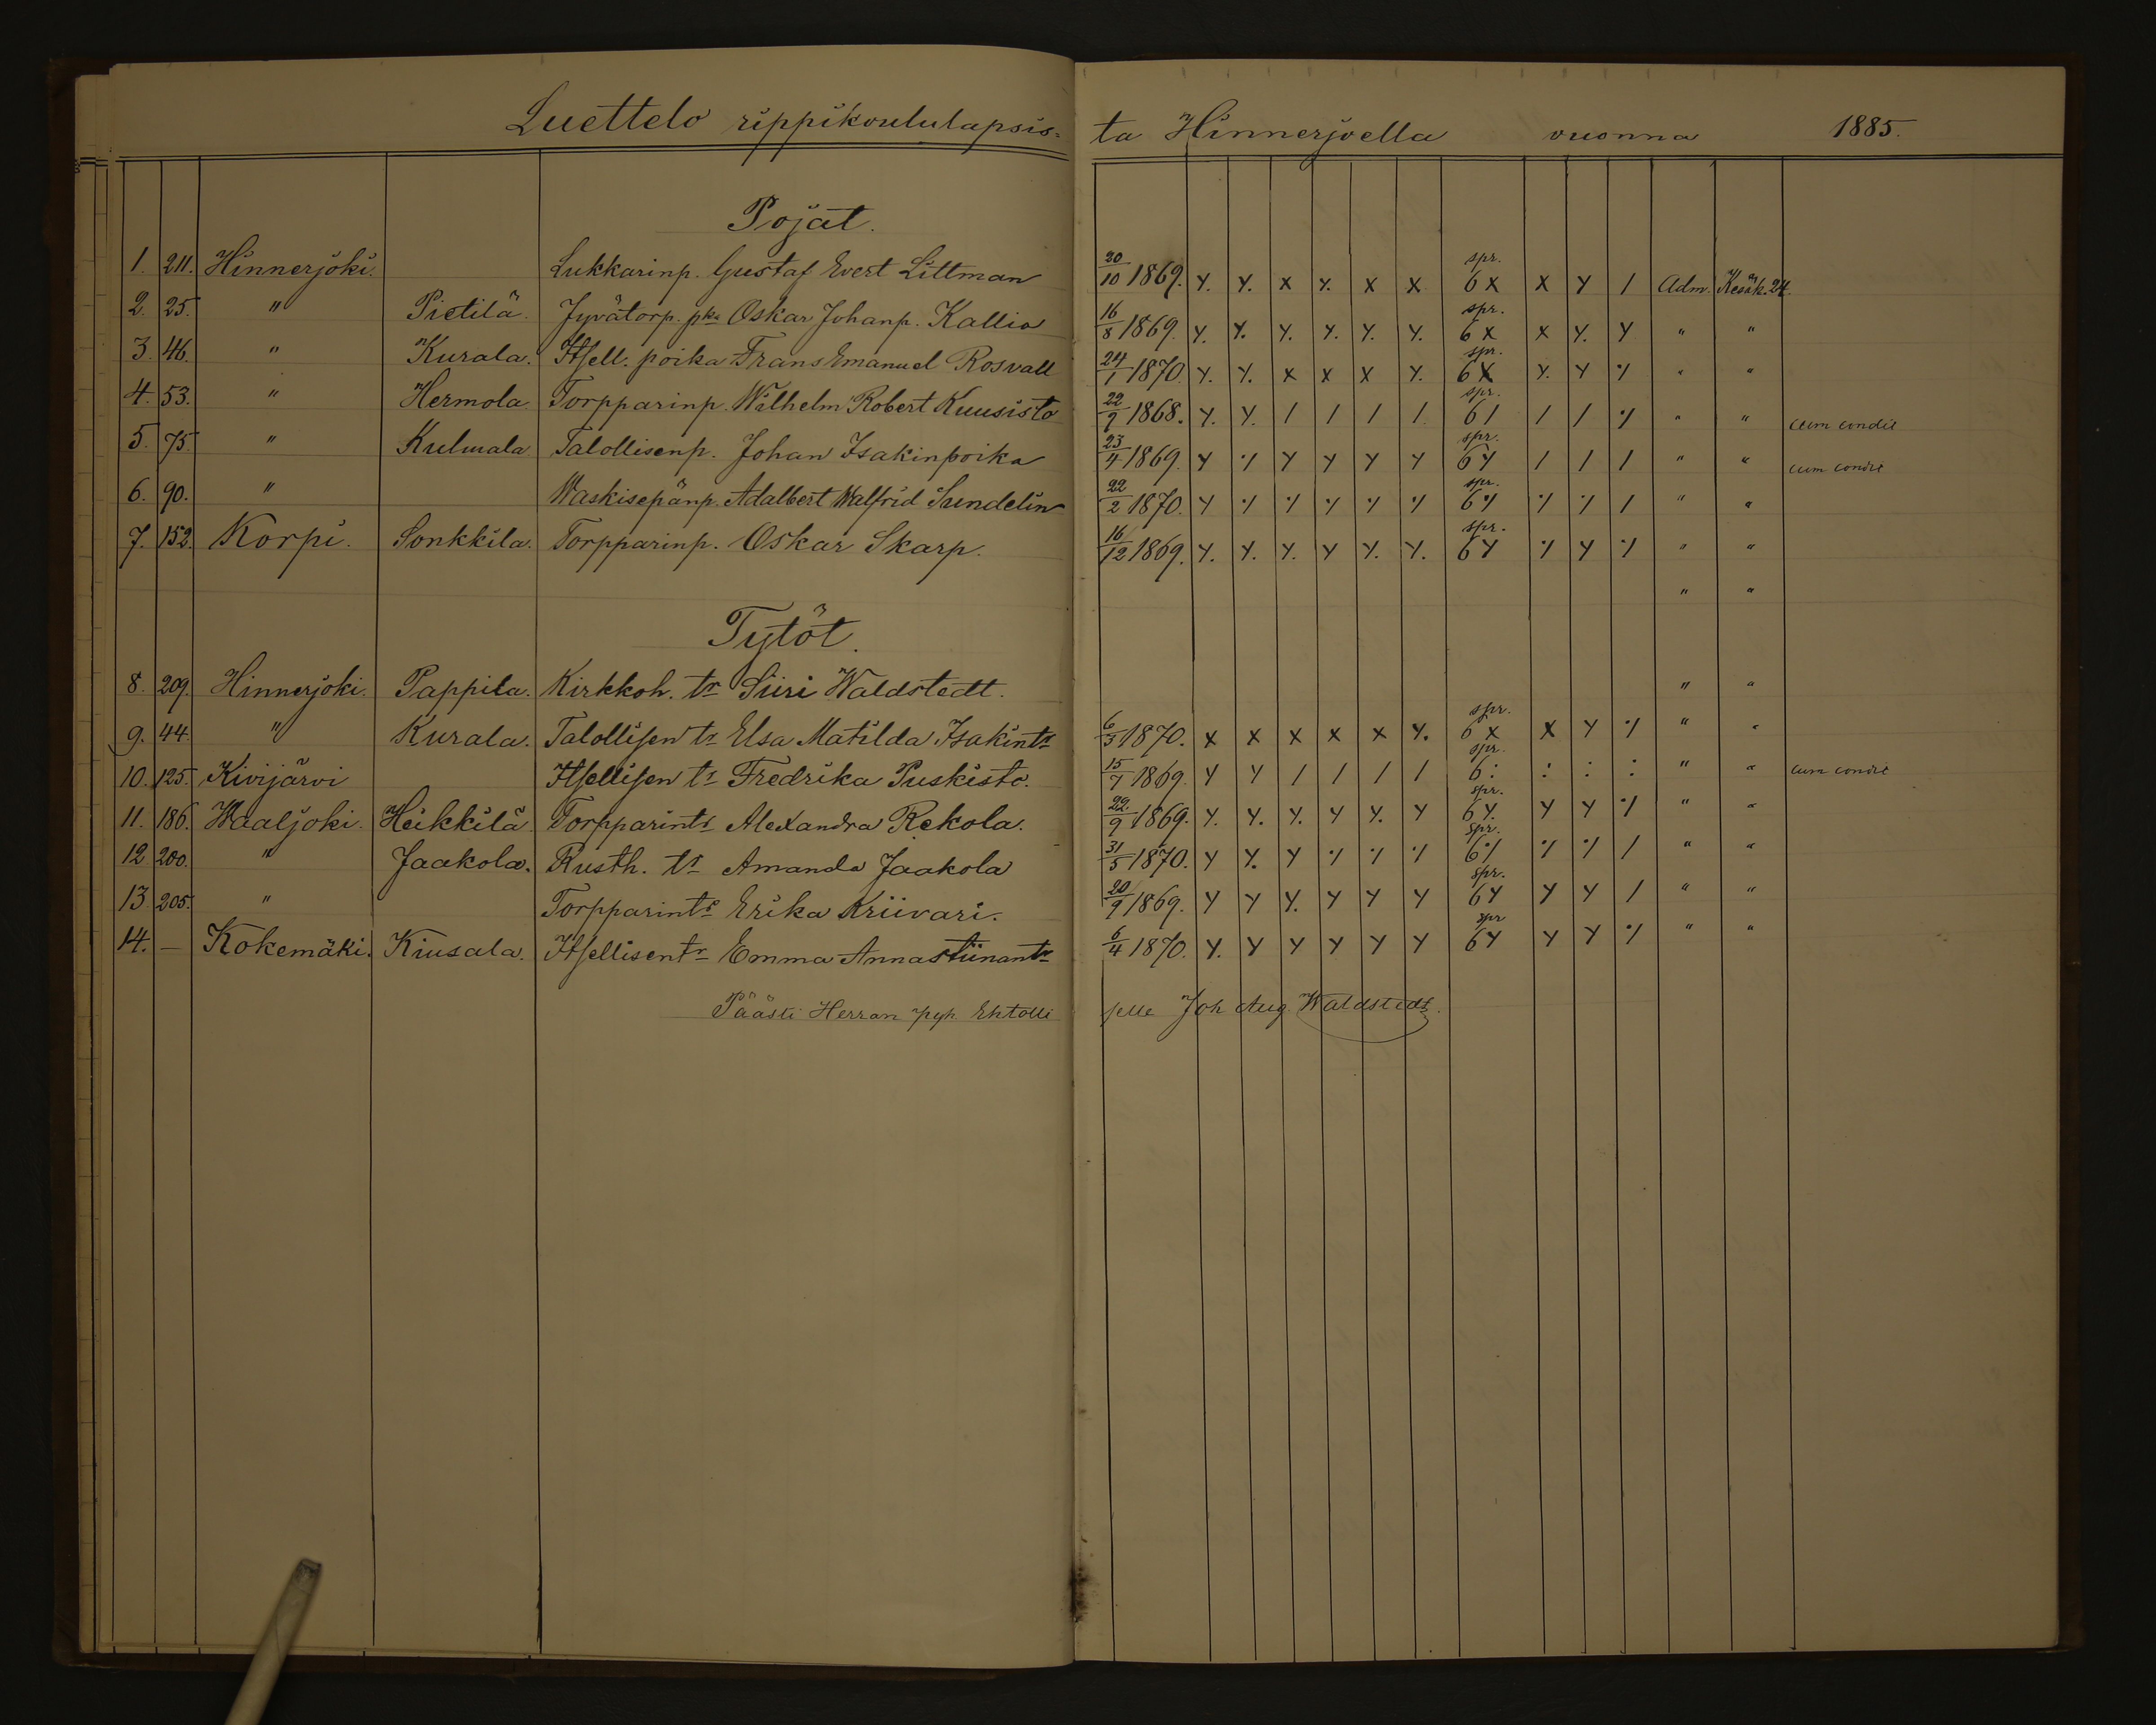 Luettelo rippikoululapsis= ta Hinnerjoella vuonna 1885.
Pojat.
1. 211. Hinnerjoki. Lukkarinp. Gustaf Evert Littman 20/10 1869. Y. Y. X Y. X X spr. 6 X X Y / Adm. Kesäk. 24.
2. 25. " Pietilä. Jyvätorp. pka Oskar Johanp. Kallio 16/8 1869. Y. Y. Y. Y. Y. Y. spr. 6 X X Y. Y " "
3. 46. " Kurala. Itsell. poika Frans Emanuel Rosvall 24/1 1870. Y. Y. X X X Y. spr. 6 X Y. Y ·/ " "
4. 53. " Hermola. Torpparinp. Wilhelm Robert Kuusisto 22/9 1868. Y. Y. / / / / spr. 6 / / / ·/ " " cum condic
5. 75. " Kulmala Talollisenp. Johan Isakinpoika 23/4 1869. Y ·/ Y Y Y Y spr. 6 Y / / / " " cum condic
6. 90. " Waskisepänp. Adalbert Walfrid Sundelin 22/2 1870. Y ·/ ·/ ·/ ·/ ·/ spr. 6 ·/ ·/ ·/ / " "
7. 152. Korpi. Sonkkila. Torpparinp. Oskar Skarp. 16/12 1869. Y. Y. Y. Y Y. Y. spr. 6 Y ·/ Y ·/ " "
" "
Tytöt.
8. 209. Hinnerjoki. Pappila. Kirkkoh. tr Siiri Waldstedt. " "
9. 44. " Kurala. Talollisen tr Elsa Matilda Isakintr 6/3 1870. X X X X X Y. spr. 6 X X Y ·/ " "
10. 125. Kivijärvi Itsellisen tr Fredrika Puskisto. 15/7 1869. Y Y / / / / spr. 6 : : : : " " cum condic
11. 186. Waaljoki. Heikkilä. Torpparintr Alexandra Rekola. 22/9 1869. Y. Y. Y. Y Y. Y spr. 6 Y. Y Y ·/ " "
12 200. " Jaakola. Rusth. tr Amanda Jaakola 31/5 1870. Y Y. Y ·/ ·/ ·/ spr. 6 ·/ ·/ ·/ / " "
13 205. " Torpparintr Erika Kriivari. 20/9 1869. Y Y Y. Y Y Y spr. 6 Y Y Y / " "
14. — Kokemäki. Kiusala. Itsellisentr Emma Annastiinantr 6/4 1870. Y. Y Y Y Y Y spr 6 Y Y Y ·/ " "
Päästi Herran pyh. Ehtolli selle Joh Aug. Waldstedt.